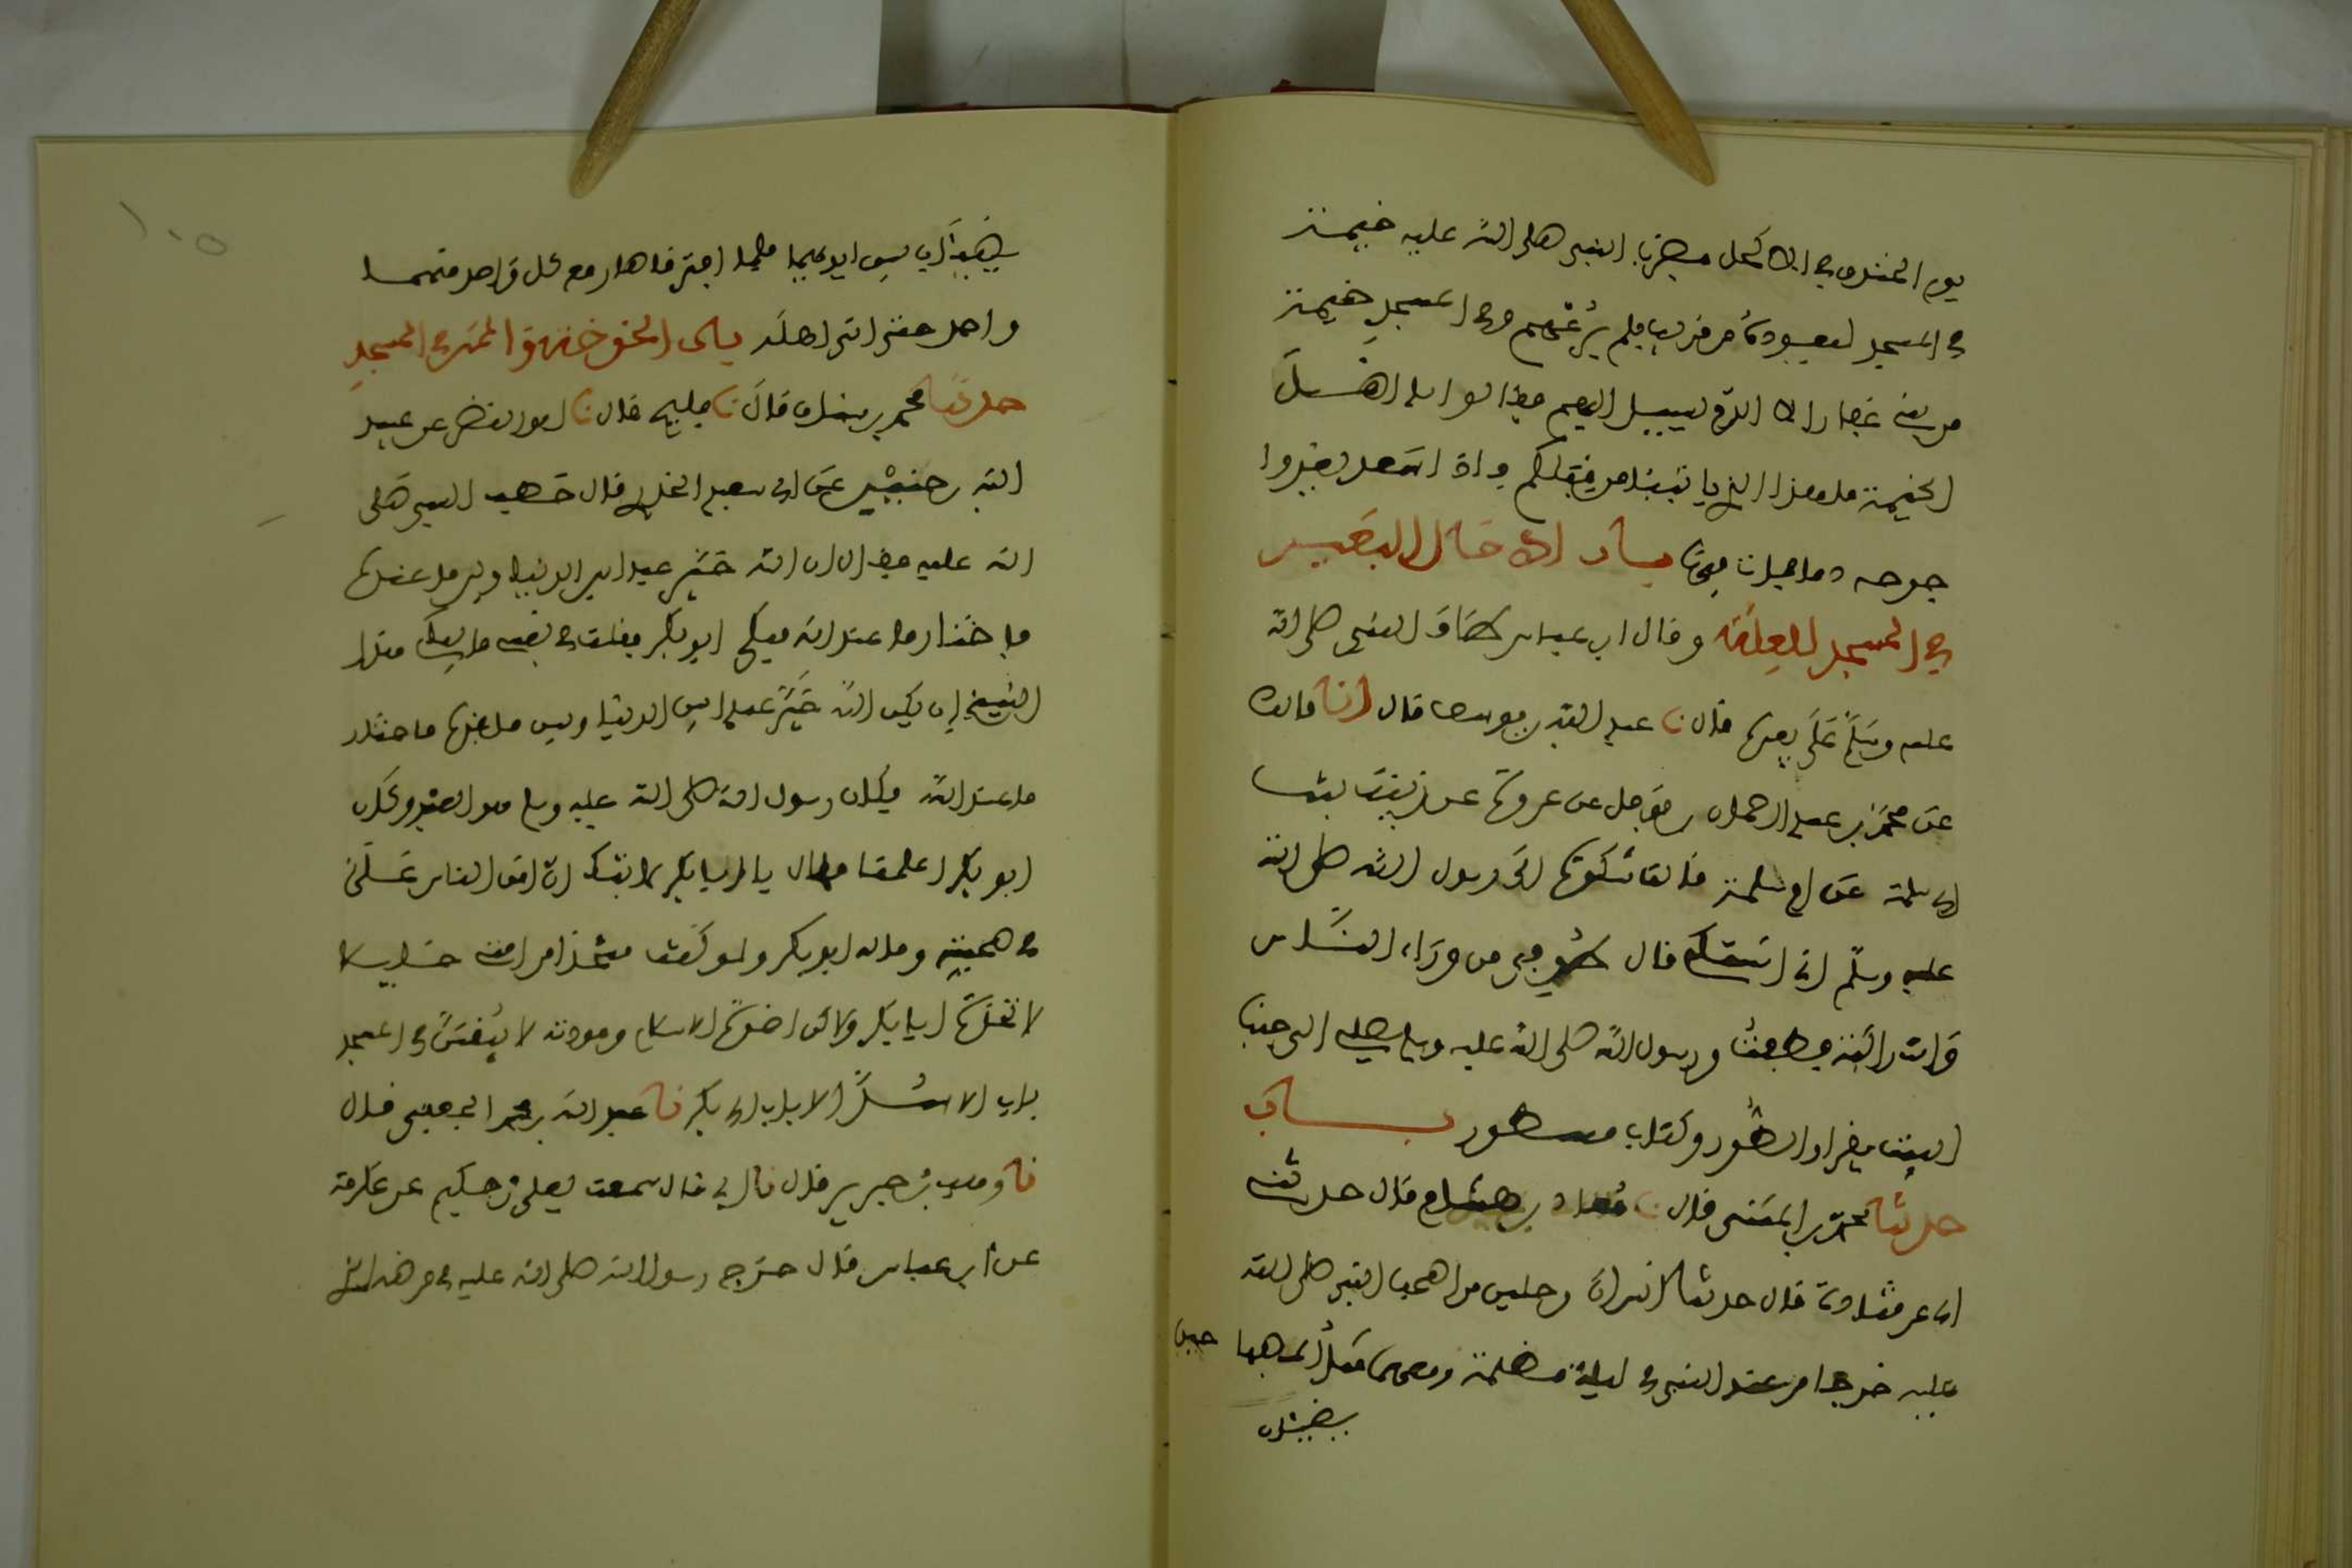 يوم الخندق في الاكحل فضرب النبي صلى الله عليه خيمة
في المسجد ليعوده من قريب فلم يرعهم وفي المسجد خيمة
من بني غفار الا الدم يسيل اليهم فقالوا يا اهل
الخيمة ما هذا الذي ياتينا من قبلكم فاذا سعد يغذوا
جرحه دما فمات فيها باب ادخال البعير
في المسجد للعلة وقال ابن عباس طاف النبي صلى الله
عليه وسلم على بعيره قال نا عبد الله بن يوسف قال انا مالك
عن محمد بن عبد الرحمان بن نوفل عن عروة عن زينب بنت
ابي سلمة عن ام سلمة قالت شكوت الى رسول الله صلى الله
عليه وسلم اني اشتكي قال طوفي من وراء الناس
وانت راكبة فطفت ورسول الله صلى الله عليه وسلم يصلي الى جنب
البيت يقرا والطور وكتاب مسطور باب
حدثنا محمد بن المثنى قال نا معاذ بن هشام قال حدثني
ابي عن قتادة قال حدثنا انس ان رجلين من اصحاب النبي صلى الله
عليه خرجا من عند النبي في ليلة مظلمة ومعهما مثل المصباحين
يضيئان
يضيئان بين ايديهما فلما افترقا صار مع كل واحد منهما
واحد حتى اتى اهله باب الخوخة والممر في المسجد
حدثنا محمد بن سنان قال نا فليح قال نا ابو النضر عن عبيد
الله بن حنين عن ابي سعيد الخدري قال خطب النبي صلى
الله عليه فقال ان الله خير عبدا بين الدنيا وبين ما عنده
فاختار ما عند الله فبكى ابو بكر فقلت في نفسي ما يبكي هذا
الشيخ ان يكن الله خير عبدا بين الدنيا وبين ما عنده فاختار
ما عند الله فكان رسول الله صلى الله عليه وسلم هو العبد وكان
ابو بكر اعلمنا فقال يا ابا بكر لا تبك ان امن الناس علي
في صحبته وماله ابو بكر ولو كنت متخذا من امتي خليلا
لاتخذت ابا بكر ولاكن اخوة الاسلام ومودته لا يبقين في المسجد
باب الا سد الا باب ابي بكر نا عبد الله بن محمد الجعفي قال
نا وهب بن جرير قال نا ابي قال سمعت يعلى بن حكيم عن عكرمة
عن ابن عباس قال خرج رسول الله صلى الله عليه في مرضه الذي